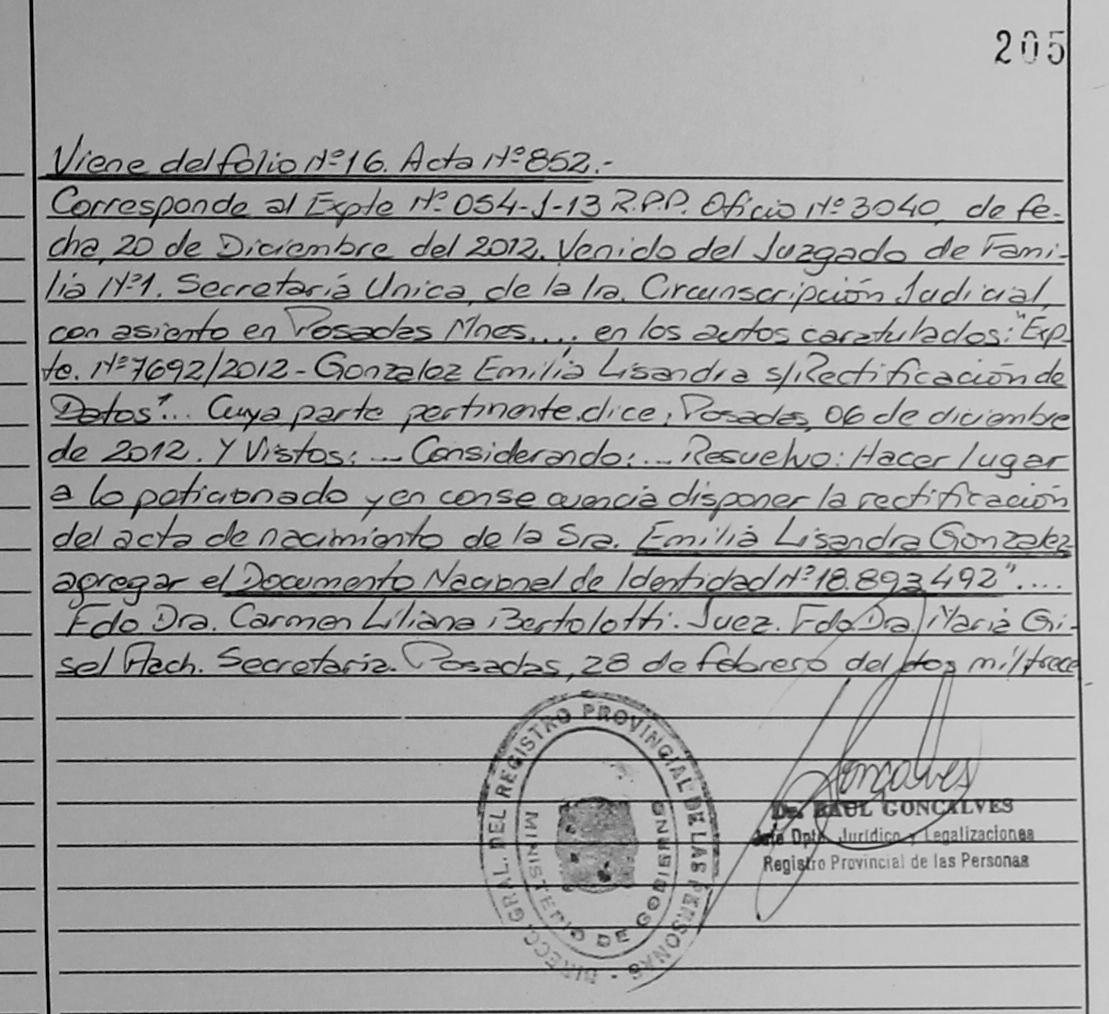 205
Viene del folio Nº 16. Acta Nº 852.-
Corresponde al Expte Nº 054-J-13 R.P.P. Oficio Nº 3040, de fe-
cha, 20 de Diciembre del 2012. Venido del Juzgado de Fami-
lia Nº1. Secretaria Unica, de la 1ra. Circunscripción Judicial,
con asiento en Posadas Mnes.... en los autos caratulados: "Exp-
te. Nº 7692/2012 - Gonzalez Emilia Lisandra s/Rectificación de
Datos"... Cuya parte pertinente dice: Posadas, 06 de diciembre
de 2012. Y Vistos: ... Considerando: ... Resuelvo: Hacer lugar
a lo peticionado y en consecuencia disponer la rectificación
del acta de nacimiento de la Sra. Emilia Lisandra Gonzalez
agregar el Documento Nacional de Identidad Nº 18.893.492"....
Fdo Dra. Carmen Liliana Bertolotti. Juez. Fdo Dra. Maria Gi-
sel Flach. Secretaria. Posadas, 28 de febrero del dos mil trece
DIRECC. GRAL. DEL REGISTRO PROVINCIAL DE LAS PERSONAS -
MINISTERIO DE GOBIERNO
Goncalves
Dr. RAUL GONCALVES
Jefe Dpto. Jurídico y Legalizaciones
Registro Provincial de las Personas